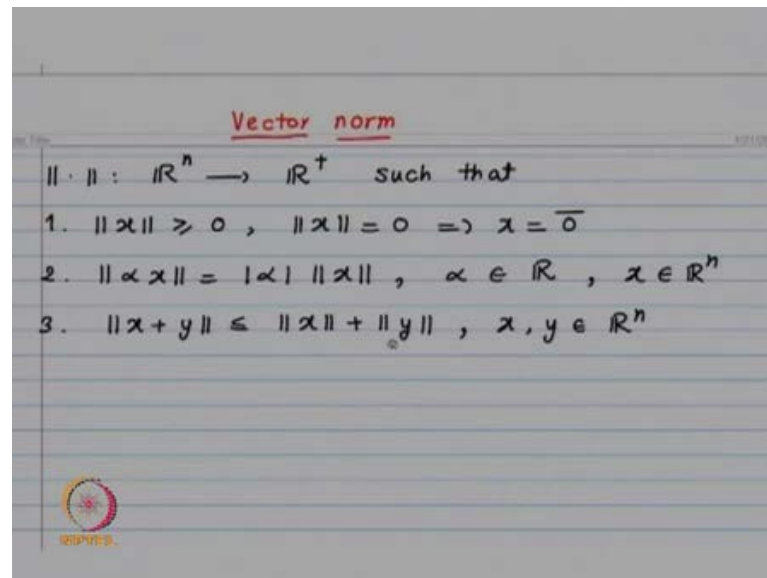 Vector norm
‖·‖ : ℝⁿ → ℝ⁺ such that
1. ‖x‖ ⩾ 0 , ‖x‖ = 0 ⇒ x = 0̅
2. ‖αx‖ = |α| ‖x‖ , α ∈ ℝ , x ∈ ℝⁿ
3. ‖x + y‖ ≤ ‖x‖ + ‖y‖ , x, y ∈ ℝⁿ
NPTEL